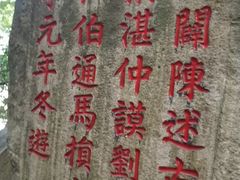 闢陳述古
湛仲謨劉
伯通馬損
元年冬遊